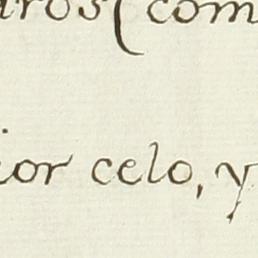 aros (com
ior celo, y